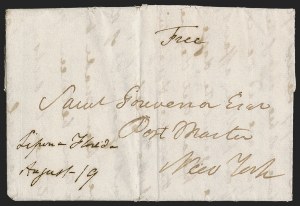 Free
Saml Gouverneur Esqr
Post Master
New York
August 19